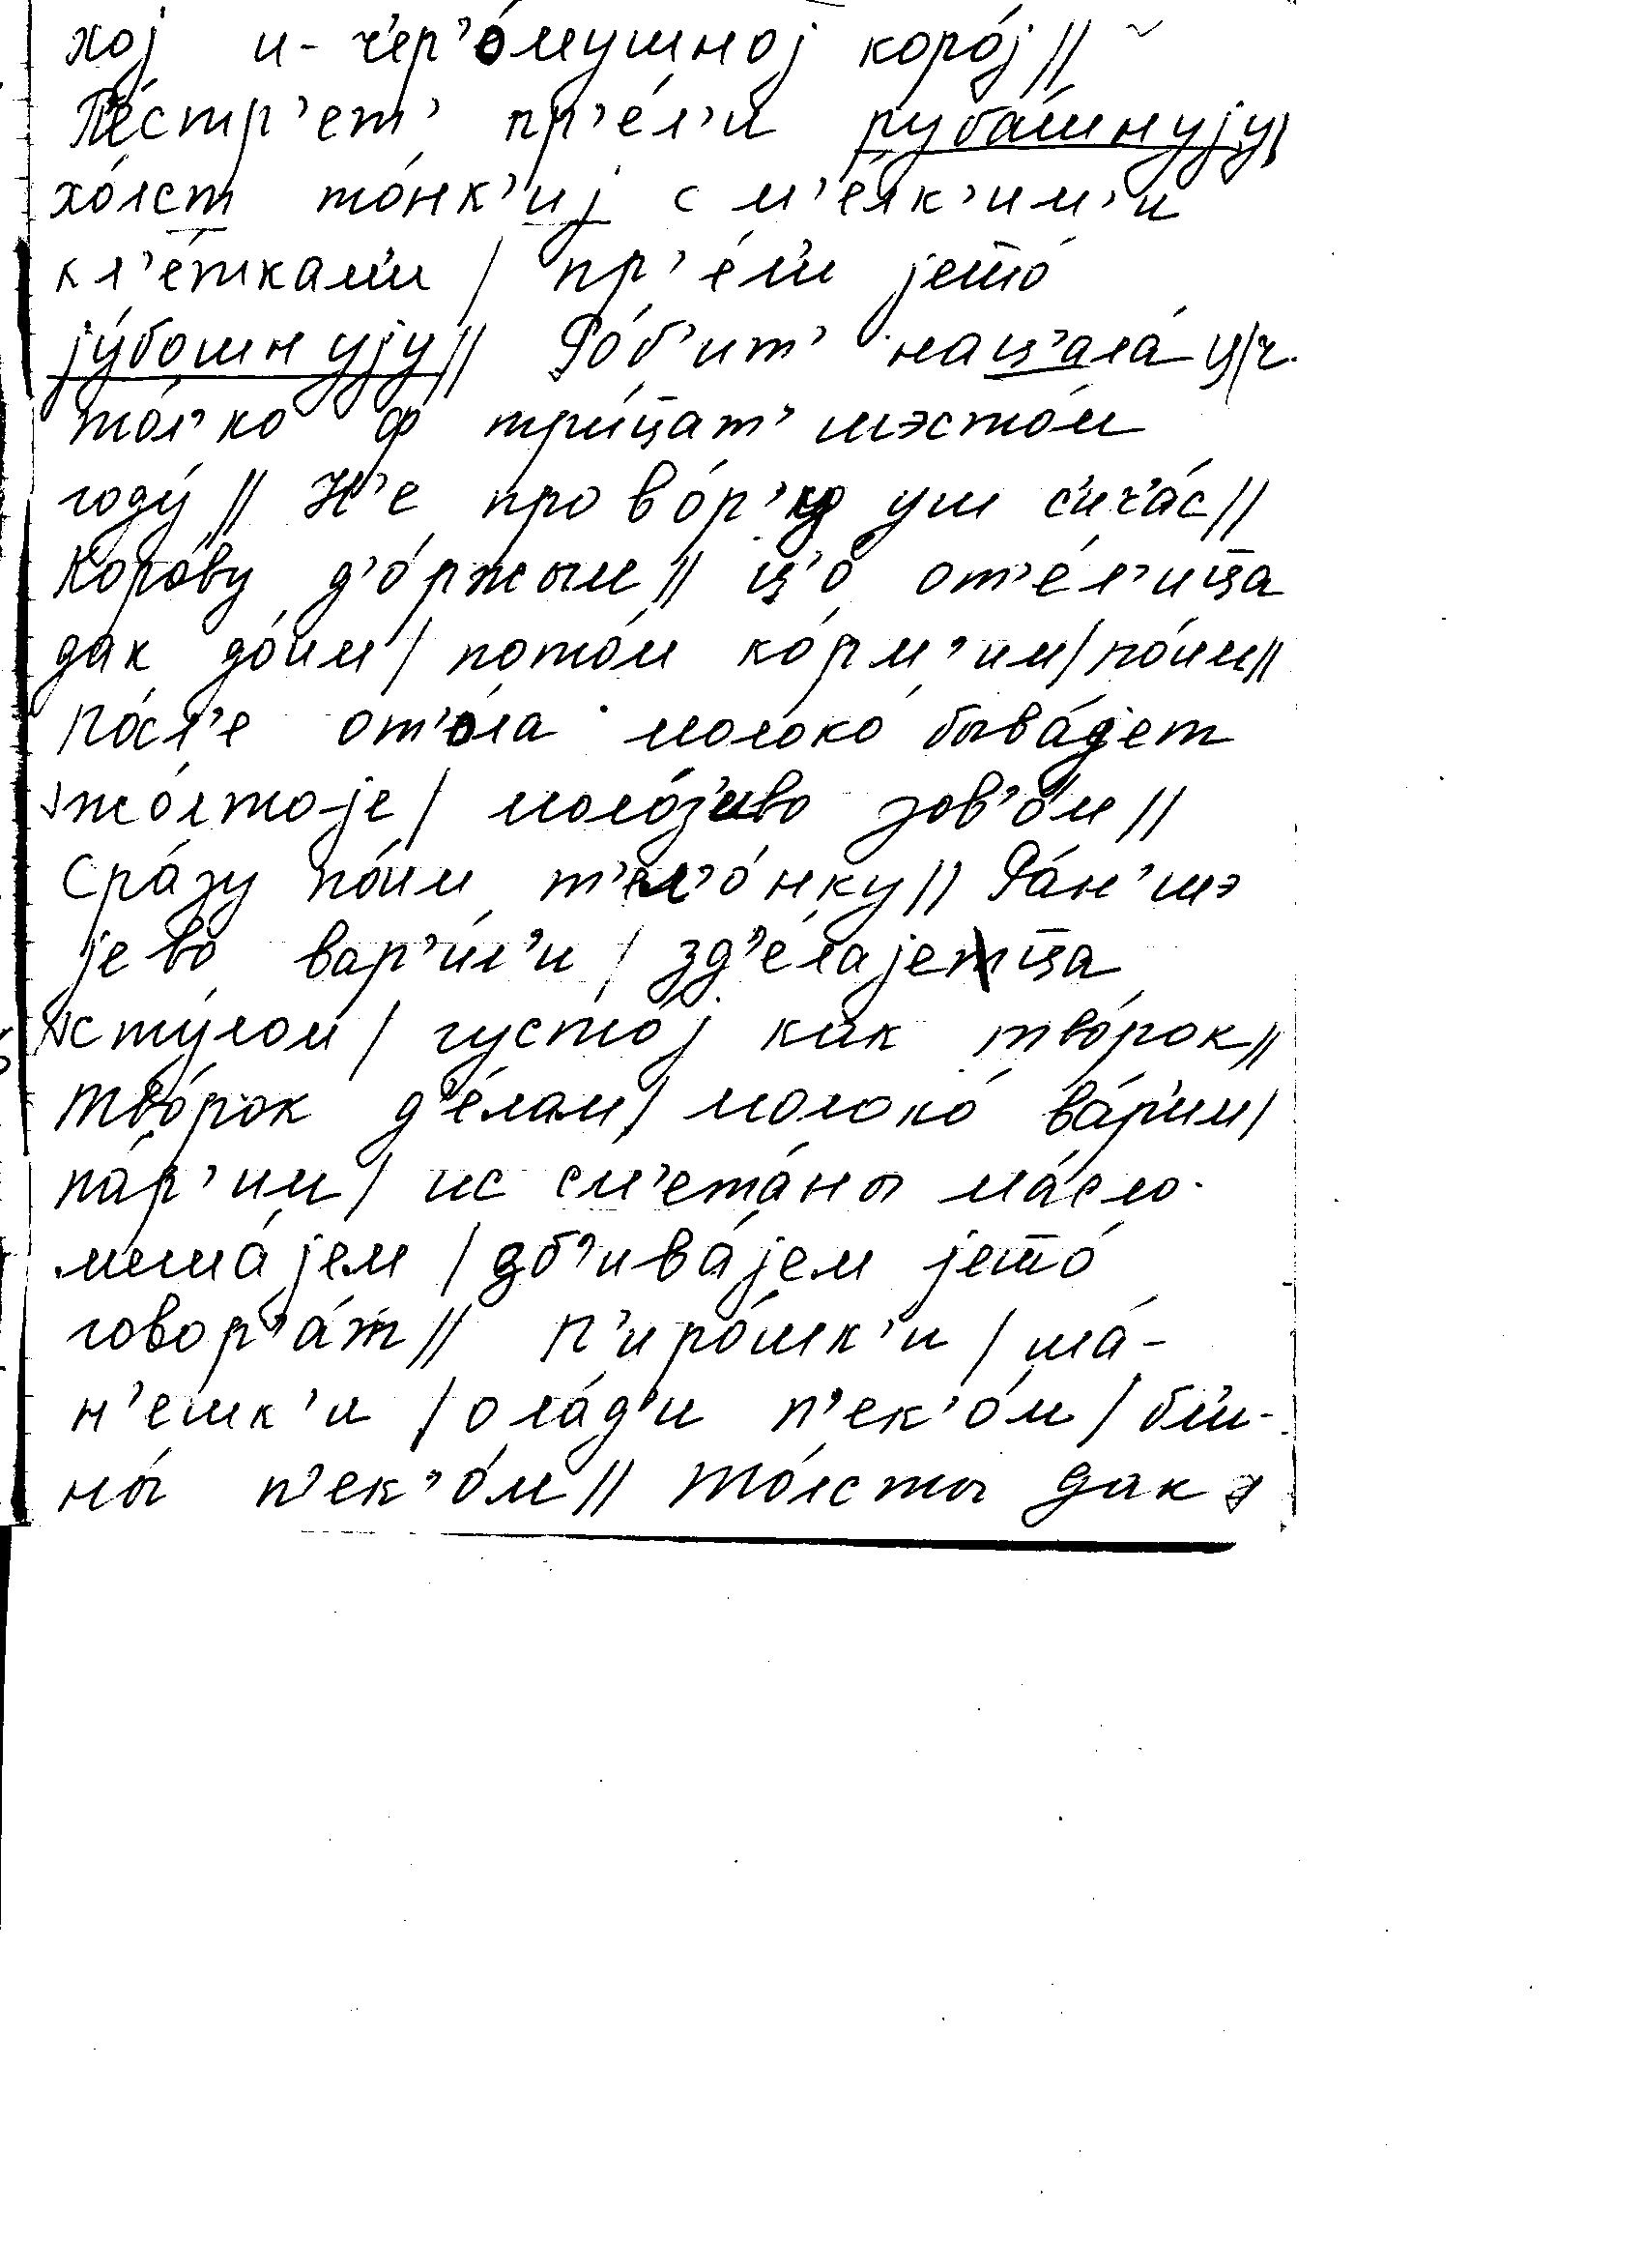 хој и-ч'ер'о́мушној коро́ј//
Пе́стр'ет' пр'е́л'и руба́шнују,
хо́лст то́нк'иј с м'е́лк'им'и
кл'е́ткам'и / пр'е́л'и јето́
ју́бошнују// Ро́б'ит' нац'ала́ ц/ч.
то́л'ко ф три́цат' шэсто́м
году́ // Н'е прово́р'ю уш с'ич'а́с//
Коро́ву д'о́ржым// ц'о от'е́л'ица
дак до́им/ пото́м ко́рм'им/ по́им//
По́сл'е от'о́ла молоко́ быва́јет
жо́лтоје/ моло́з'иво зов'о́м//
Сра́зу по́им т'ел'о́нку// Ра́н'шэ
јево́ вар'и́л'и / зд'е́лајеца
сту́лом / густо́ј как тво́рок//
Тво́рок д'е́лам/ молоко́ ва́р'им/
па́р'им/ ис см'ета́ны ма́сло
меша́јем / зб'ива́јем јето́
говор'а́т// П'иро́шк'и / ша́-
н'ешк'и / ола́д'и п'ек'о́м / бл'и-
ны́ п'ек'о́м// То́лсты дак